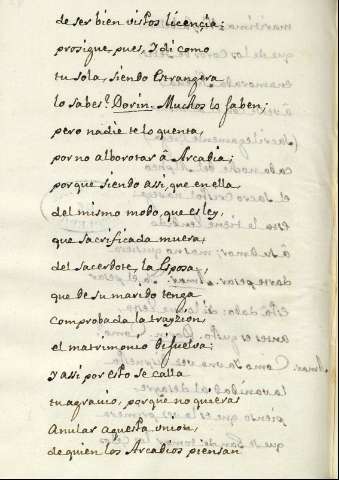 de ser bien vistos licençia;
prosigue pues, y di como
tu sola, siendo Estrangera
lo sabes? Dorin. Muchos lo saben;
pero nadie te lo quenta,
por no alborotar â Arcadia;
porque siendo assi, que en ella,
del mismo modo, que es ley,
que sacrificada muera,
del sacerdote, la Esposa,
que de su marido tenga
comprobada la trayzion,
el matrimonio disuelva:
y assi por esto se calla
tu agravio, porque no quieras
Anular aquesta union,
de quien los Arcadios piensan